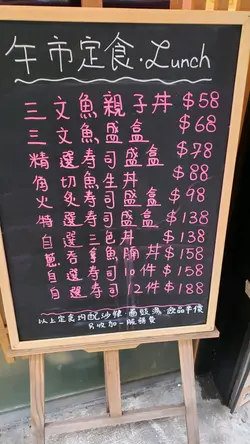 午市定食·Lunch
三文魚親子丼 $58
三文魚盛盒 $68
精選壽司盛盒 $78
角切魚生丼 $88
火炙壽司盛盒 $98
特選壽司盛盒 $138
自選三色丼 $138
蔥吞拿魚腩丼 $158
自選壽司10件 $158
自選壽司12件 $188
以上定食均配沙律·麵豉湯·飲品半價
另收加一服務費